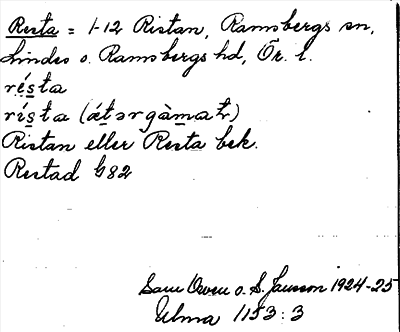 Resta = 1-12 Ristan, Ramsbergs sn,
Lindes o. Ramsbergs hd, Ör. l.
résta
rísta (ǽtərgàmat)
Ristan eller Resta bek.
Restad 682
Sam Owen o. S. Jansson 1924-25
Ulma 1153:3